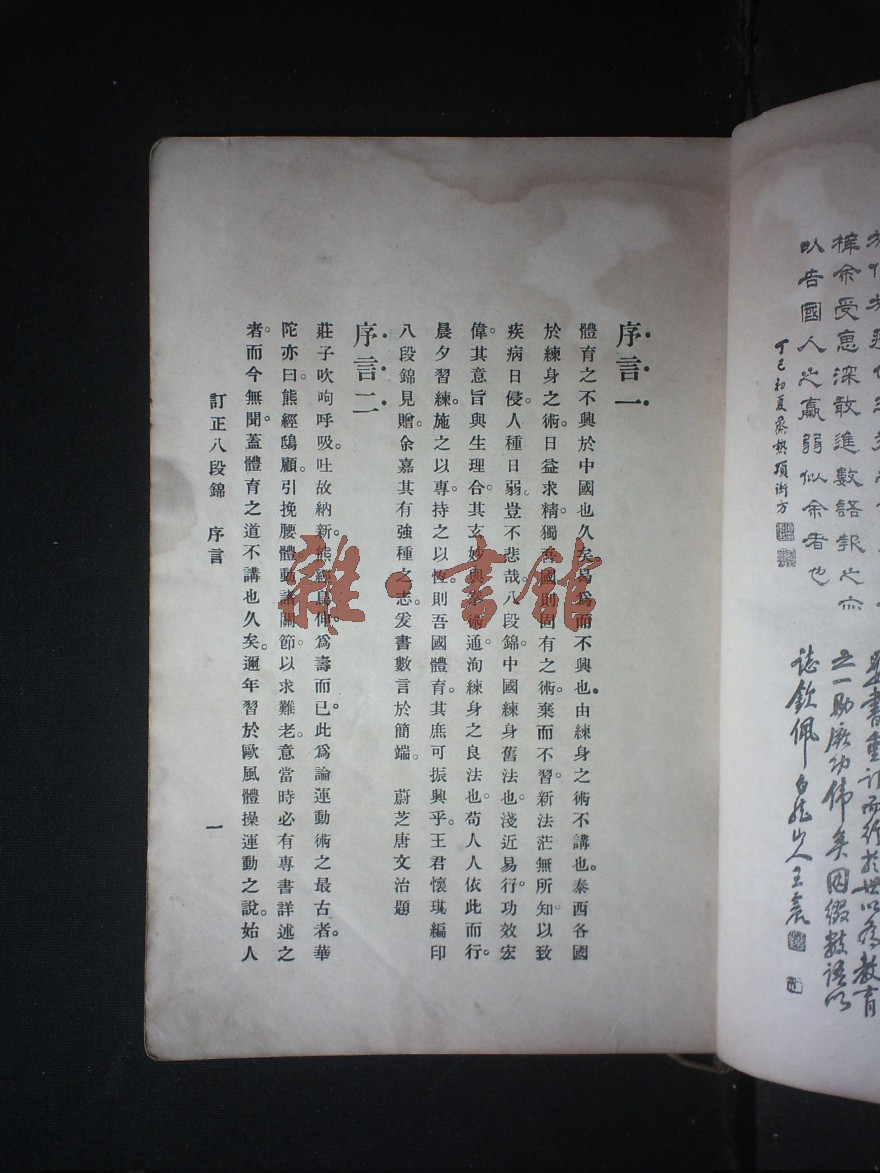 余受惠深敢進數語報之
㠯告國人之羸弱似余者也
書重訂而行於世以為教育
之一助厥功偉矣因綴數語以
誌欽佩 白龍山人王震
序言一
體育之不興於中國也久矣。曷爲而不興也。由練身之術不講也。泰西各國
於練身之術。日益求精。獨吾國則固有之術。棄而不習。新法茫無所知以致
疾病日侵。人種日弱。豈不悲哉。八段錦。中國練身舊法也。淺近易行。功效宏
偉。其意旨與生理合。其玄妙與拳術通。洵練身之良法也。苟人人依此而行。
晨夕習練。施之以專。持之以恆。則吾國體育。其庶可振興乎。王君懷琪編印
八段錦見贈。余嘉其有強種之志。爰書數言於簡端。 蔚芝唐文治題
序言二
莊子吹呴呼吸。吐故納新。熊經鳥伸。爲壽而已。此爲論運動術之最古者。華
陀亦曰。熊經鴟顧。引挽腰體。動諸關節。以求難老。意當時必有專書詳述之
者。而今無聞。蓋體育之道不講也久矣。邇年習於歐風體操運動之說。始人
訂正八段錦 序言
一
雜·書館